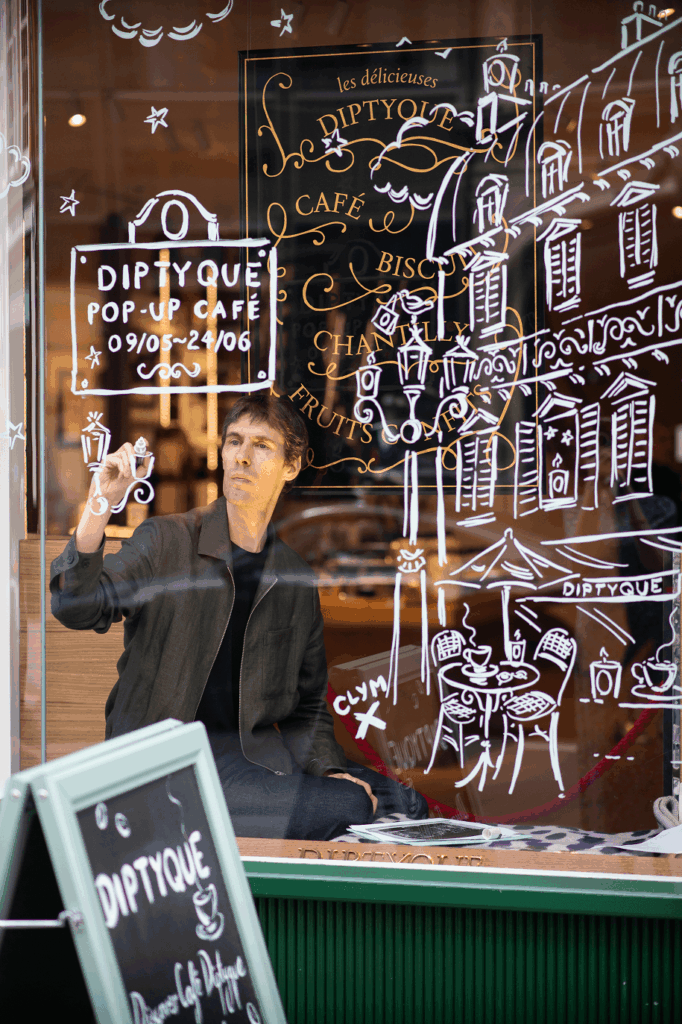 les délicieuses
DIPTYQUE
CAFÉ
BISCUI
CHANTILLY
FRUITS CONFITS
DIPTYQUE
POP-UP CAFÉ
09/05~24/06
DIPTYQUE
CLYM
DIPTYQUE
DIPTYQUE
Discover Café Diptyque